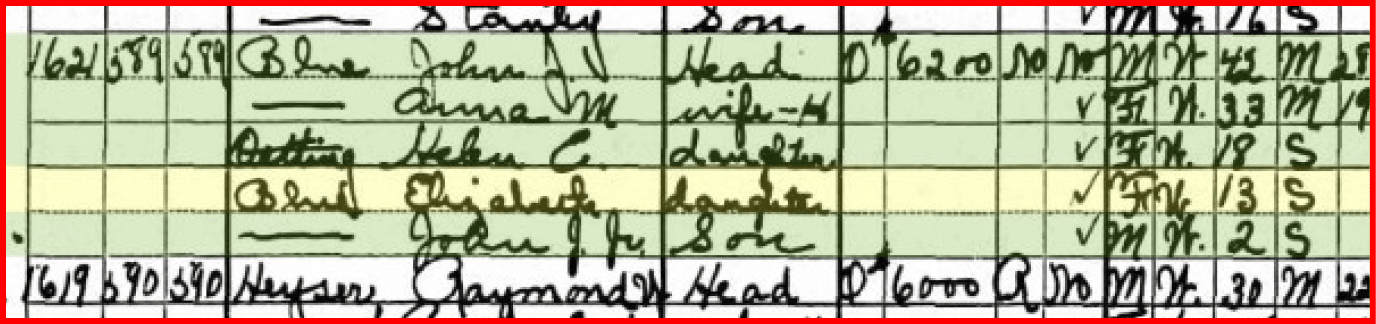 Stanley Son ✓ M W. 16 S
1621 589 589 Blue John J. Head O 6200 No No M W. 42 M 28
— Anna M wife-H ✓ F W. 33 M 19
Helen C. daughter ✓ F W. 18 S
Blue Elizabeth daughter ✓ F W. 13 S
— John J. Jr. Son ✓ M W. 2 S
1619 590 590 Heyser, Raymond W Head O 6000 R No M W. 30 M 22